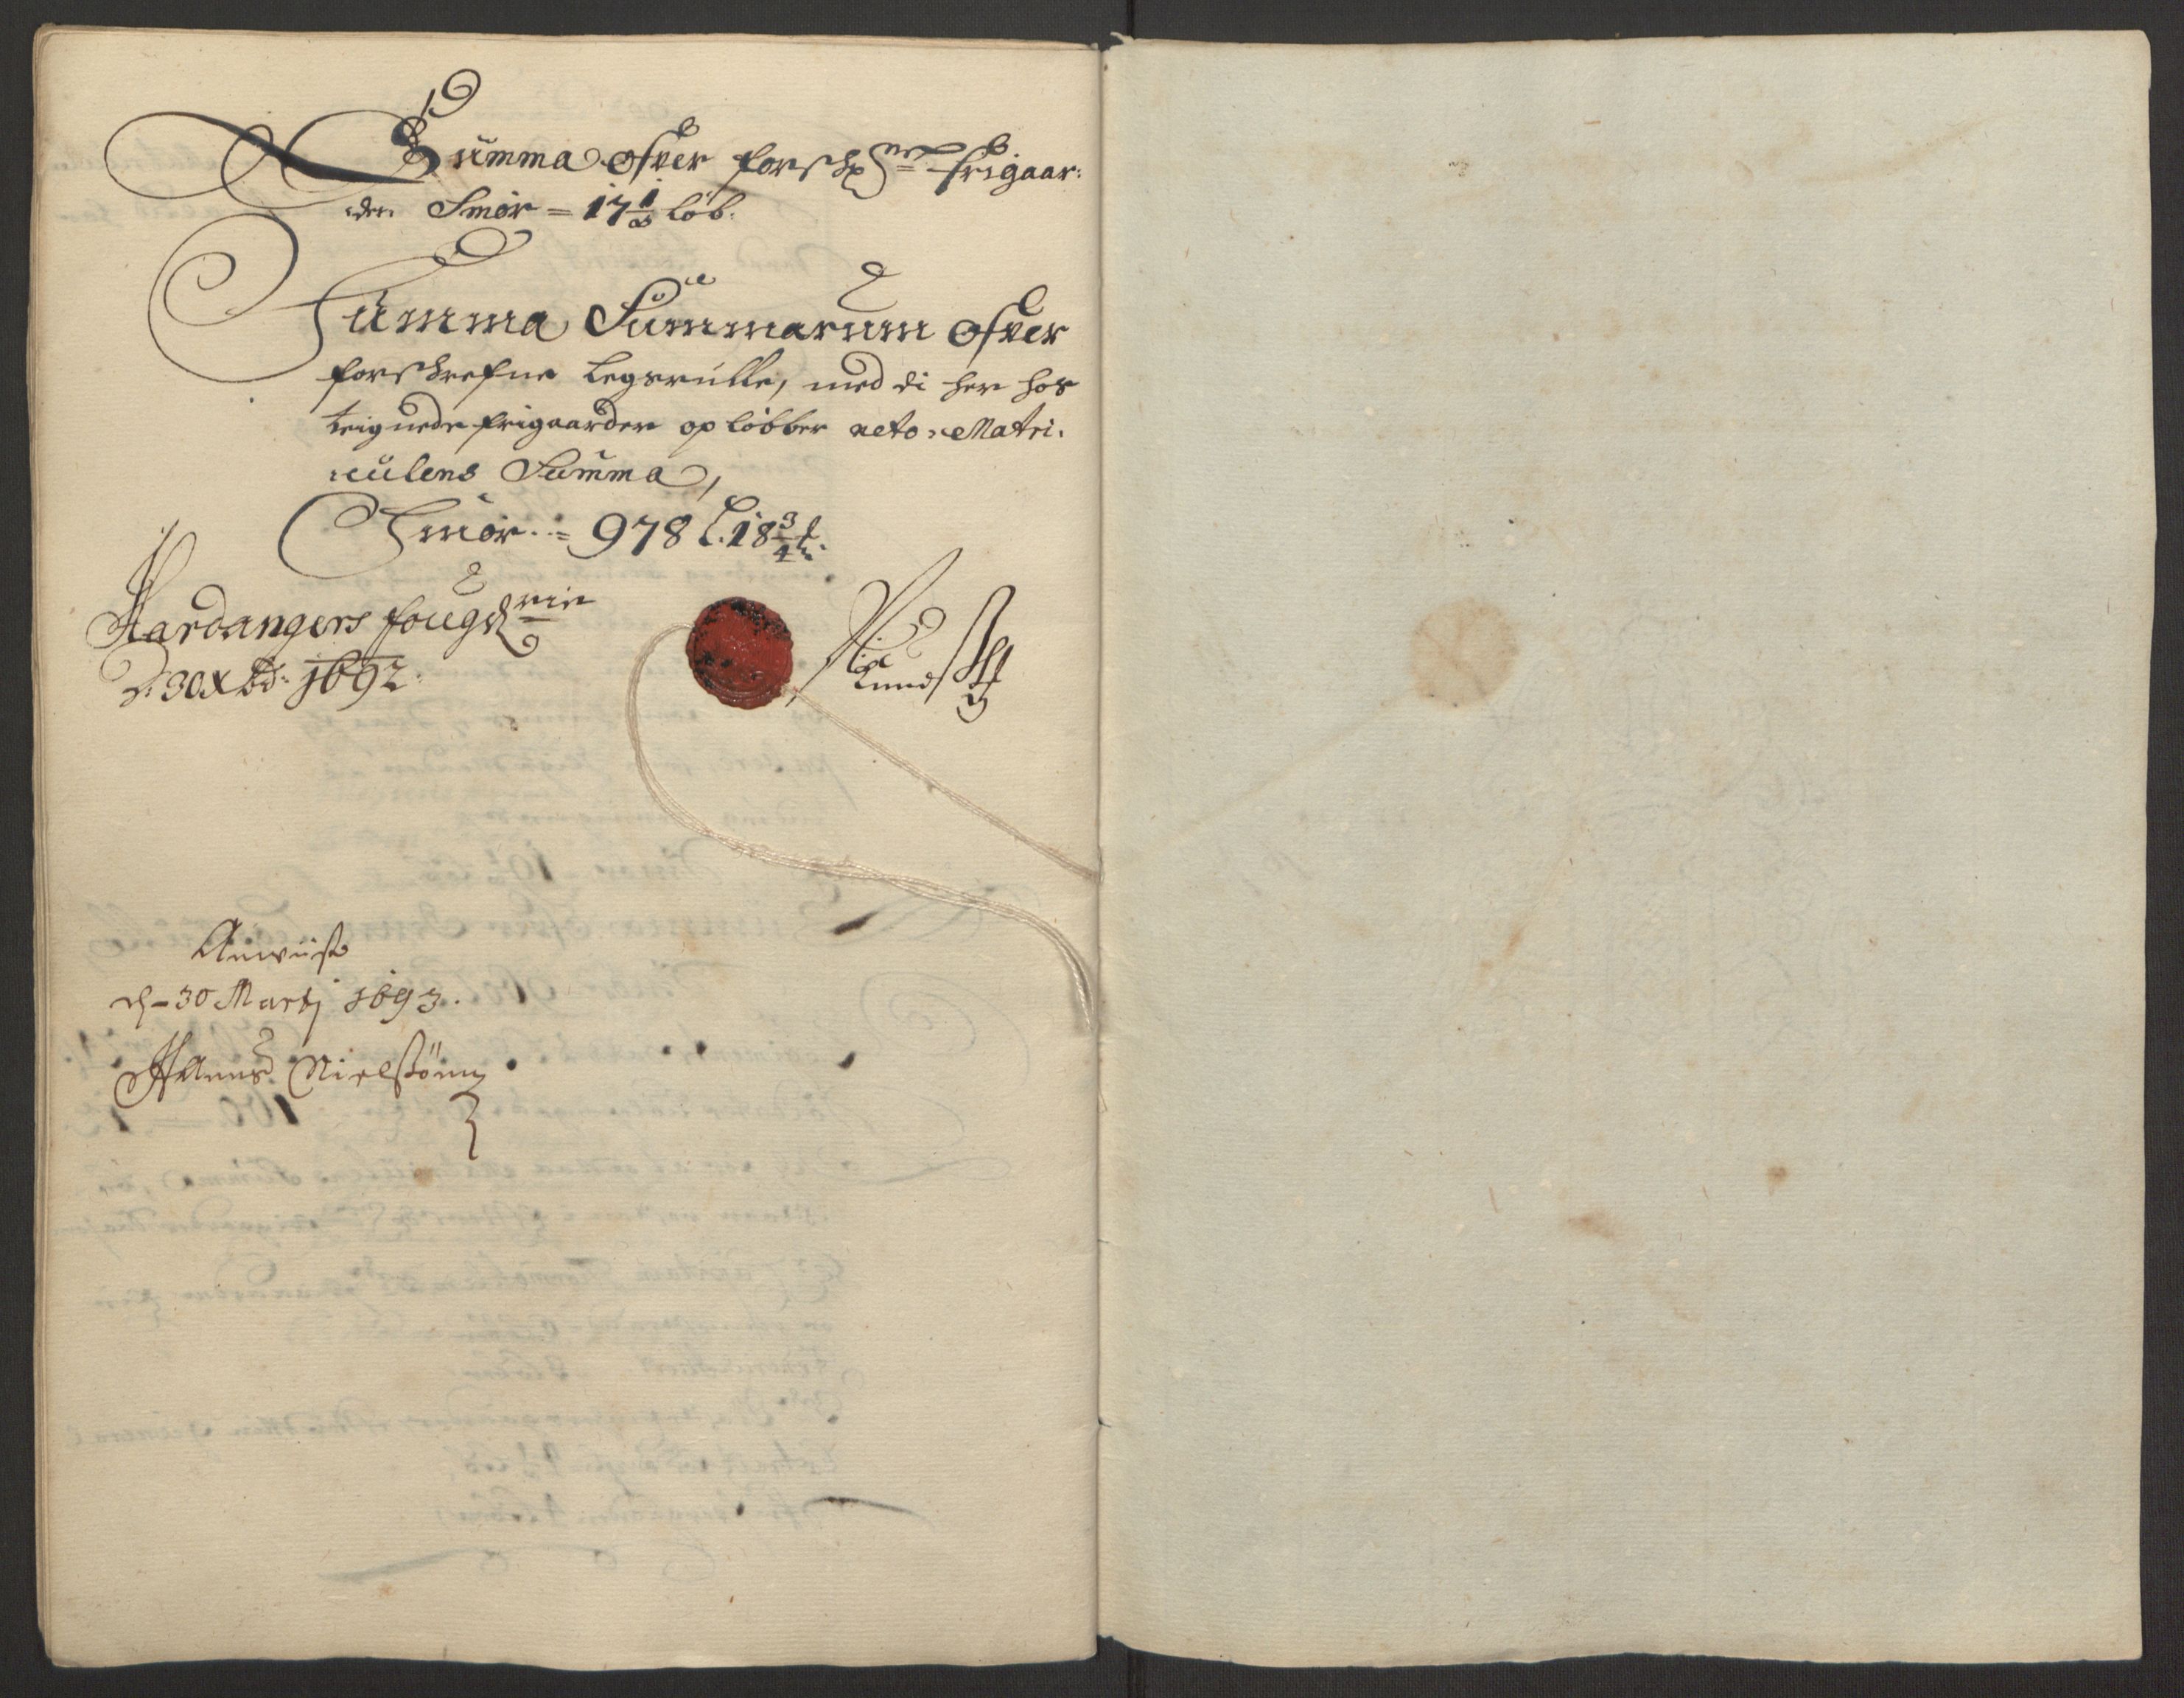 Summa ofver forschr:ne frigaar:
:der Smör = 17 1/8 löb.
Summa Summarum ofver
forschrefne Legsrulle, med di her hos
teignede frigaarder op löbber neto :Matri:
:culens Summa,
Smör = 978 L. 18 3/4
Hardangers fougd:rie
D: 30 Xbr: 1692.
Knud
Anviist
d 30 Martj 1693.
Hanns Nielssönn